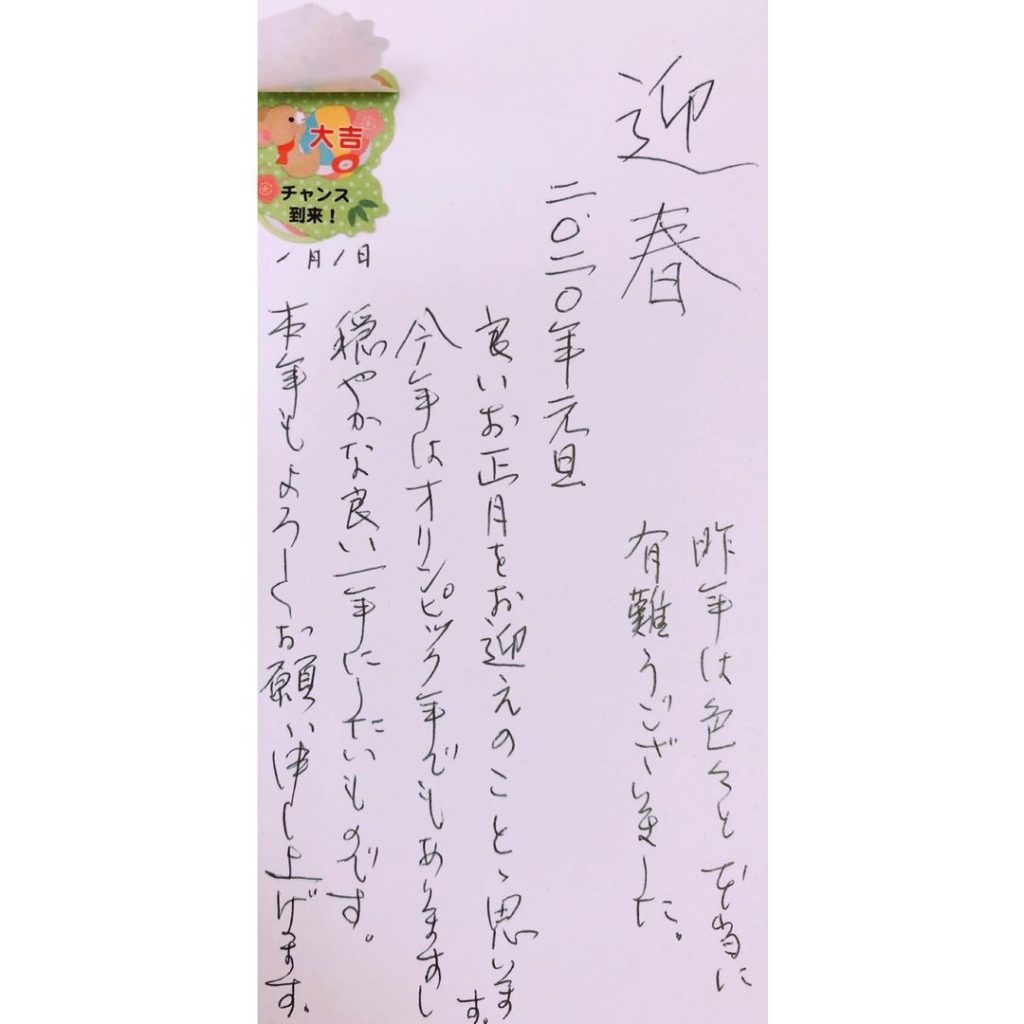 迎春
昨年は色々と本当に
有難うございました。
二〇二〇年元旦
良いお正月をお迎えのことゝ思います。
今年はオリンピック年でもありますし
穏やかな良い一年にしたいものです。
本年もよろしくお願い申し上げます。
1月1日
大吉
チャンス
到来！